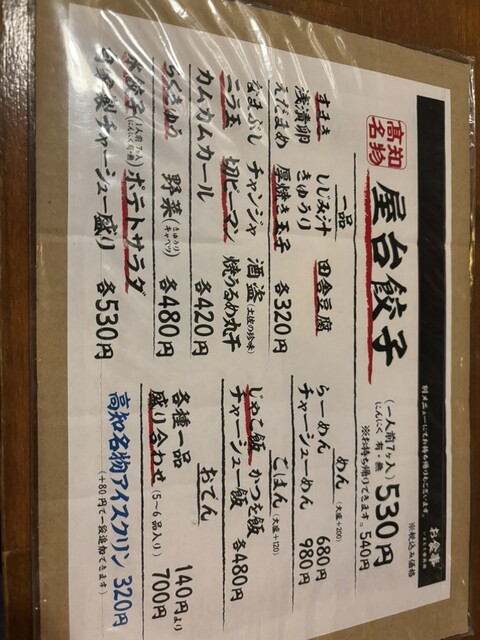 お食事
別メニューにてお持ち帰りもございます。
高知名物
屋台餃子
(一人前7ヶ入)
にんにく 有・無
530円
※税込み価格
※お持ち帰りできます。540円
一品
すまき しじみ汁 田舎豆腐
浅漬卵 きゅうり
えだまめ 厚焼き玉子 各320円
なまぶし チャンジャ 酒盗(土佐の珍味)
ニラ玉 切ピーマン 焼うるめ丸干
カムカムカール 各420円
らくきゅう 野菜(きゅうり キャベツ) 各480円
水餃子(1人前7ヶ)にんにく有・無 ポテトサラダ
自家製チャーシュー盛り 各530円
めん(大盛+200)
らーめん 680円
チャーシューめん 980円
ごはん(大盛+120)
じゃこ飯 かつを飯
チャーシュー飯 各480円
おでん
各種一品 140円より
盛り合わせ(5〜6品入り) 700円
高知名物アイスクリン 320円
(+80円で一段追加できます)